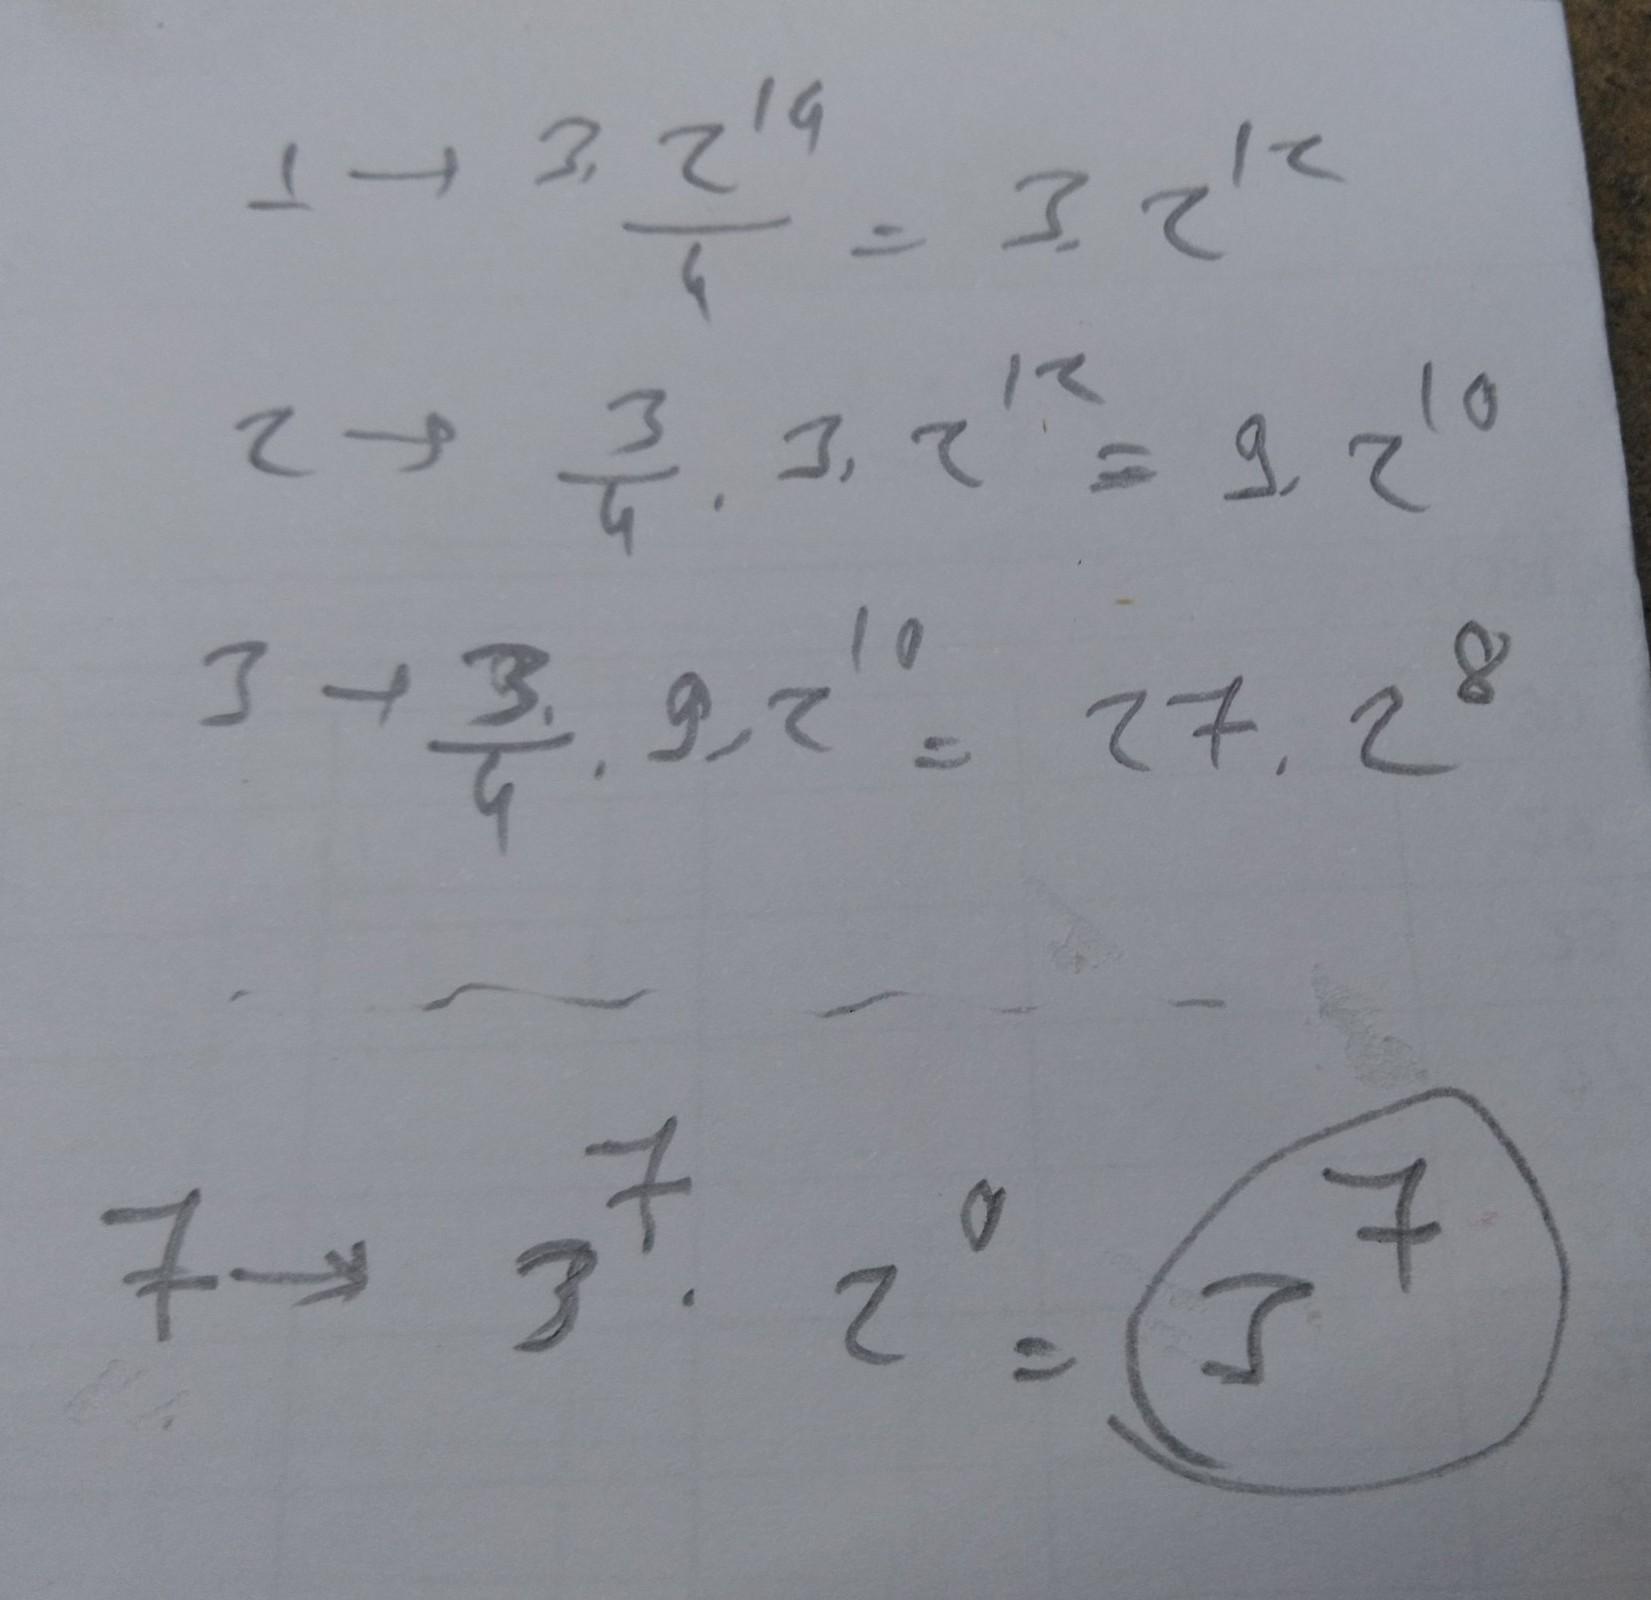 1 → 3. 2^14 / 4 = 3. 2^12
2 → 3/4 . 3. 2^12 = 9. 2^10
3 → 3/4 . 9. 2^10 = 27. 2^8
7 → 3^7 . 2^0 = 3^7